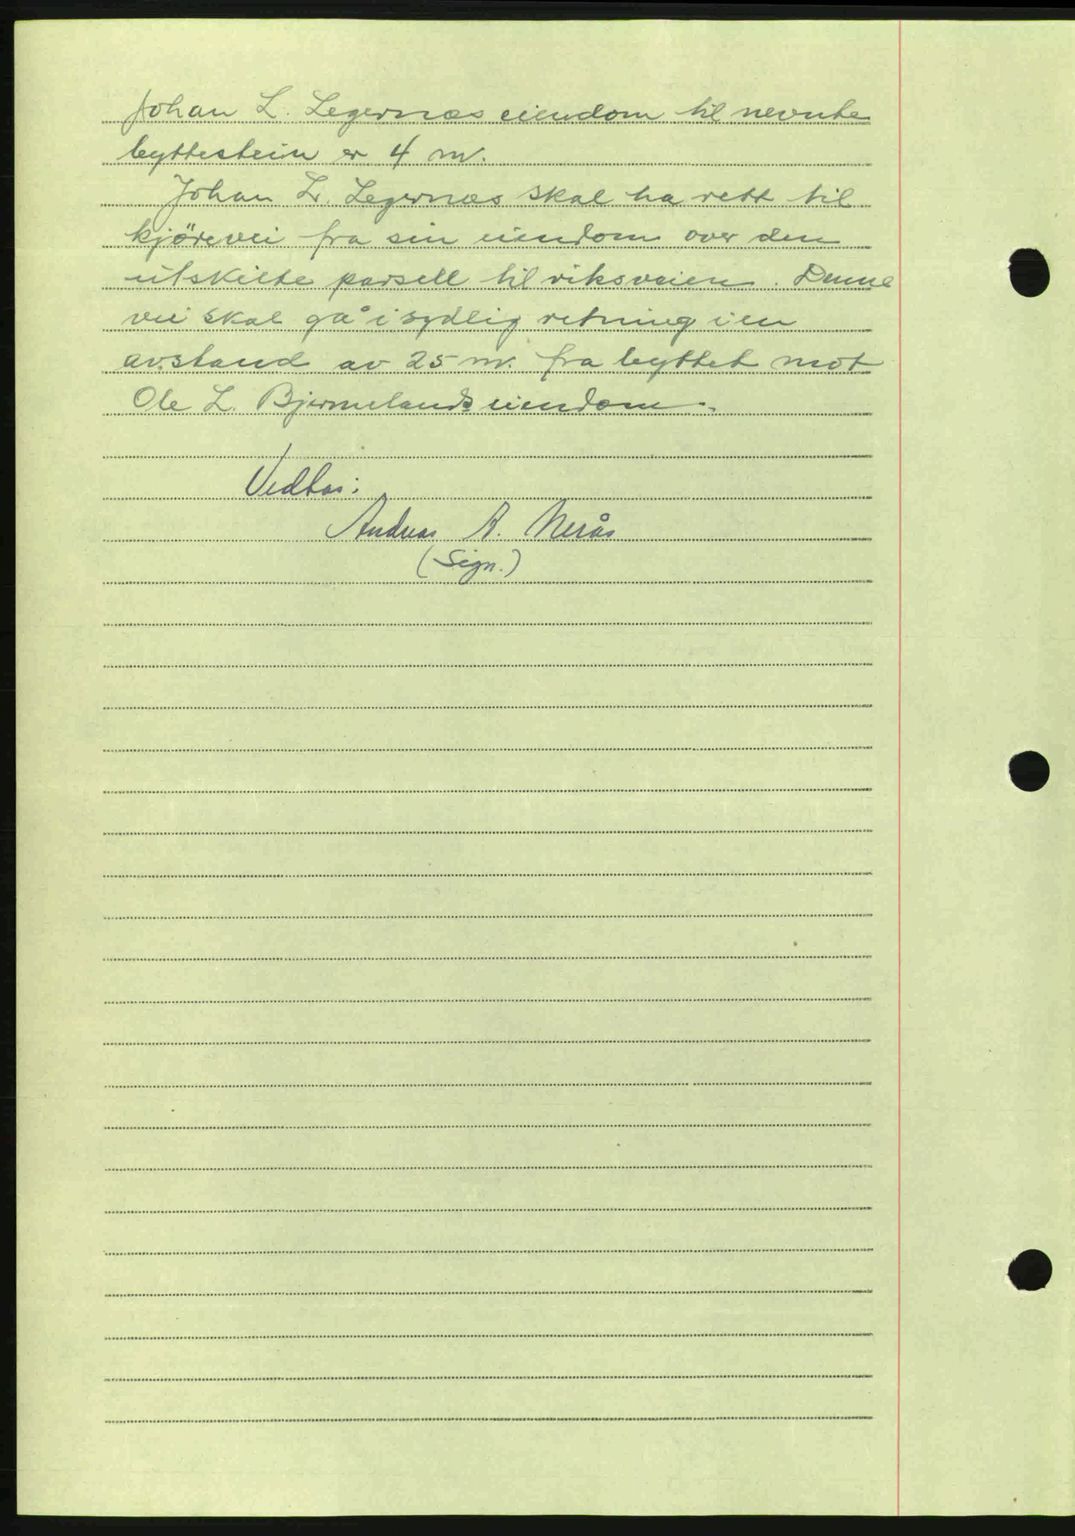 Johan L. Legernæs eiendom til nevnte
byttestein er 4 m.
Johan L. Legernæs skal ha rett til
kjörevei fra sin eiendom over den
utskilte parsell til riksveien. Denne
vei skal gå i sydlig retning i en
avstand av 25 m. fra byttet mot
Ole L. Bjermelands eiendom.
Vedtas:
Andreas A. Nerås
(Sign.)